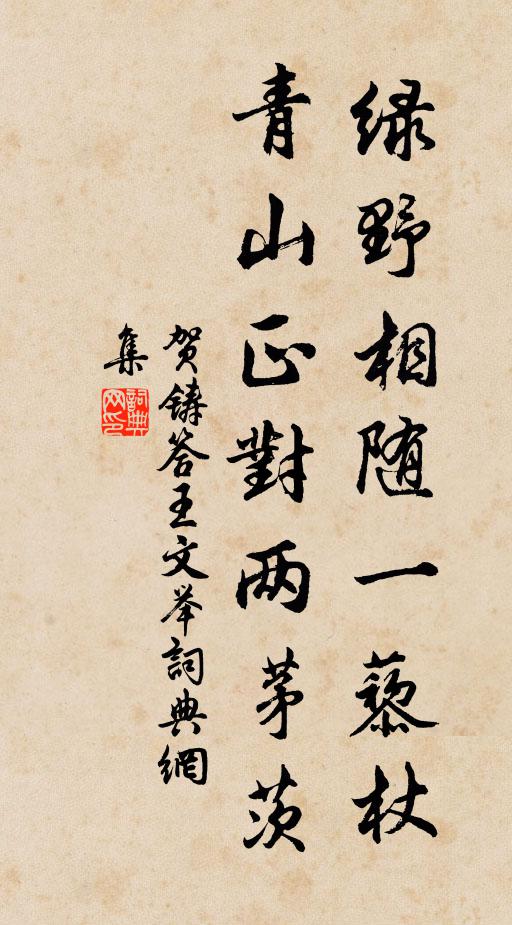 绿野相随一藜杖
青山正對两茅茨
贺铸答王文举詞典網
集
詞典
网印